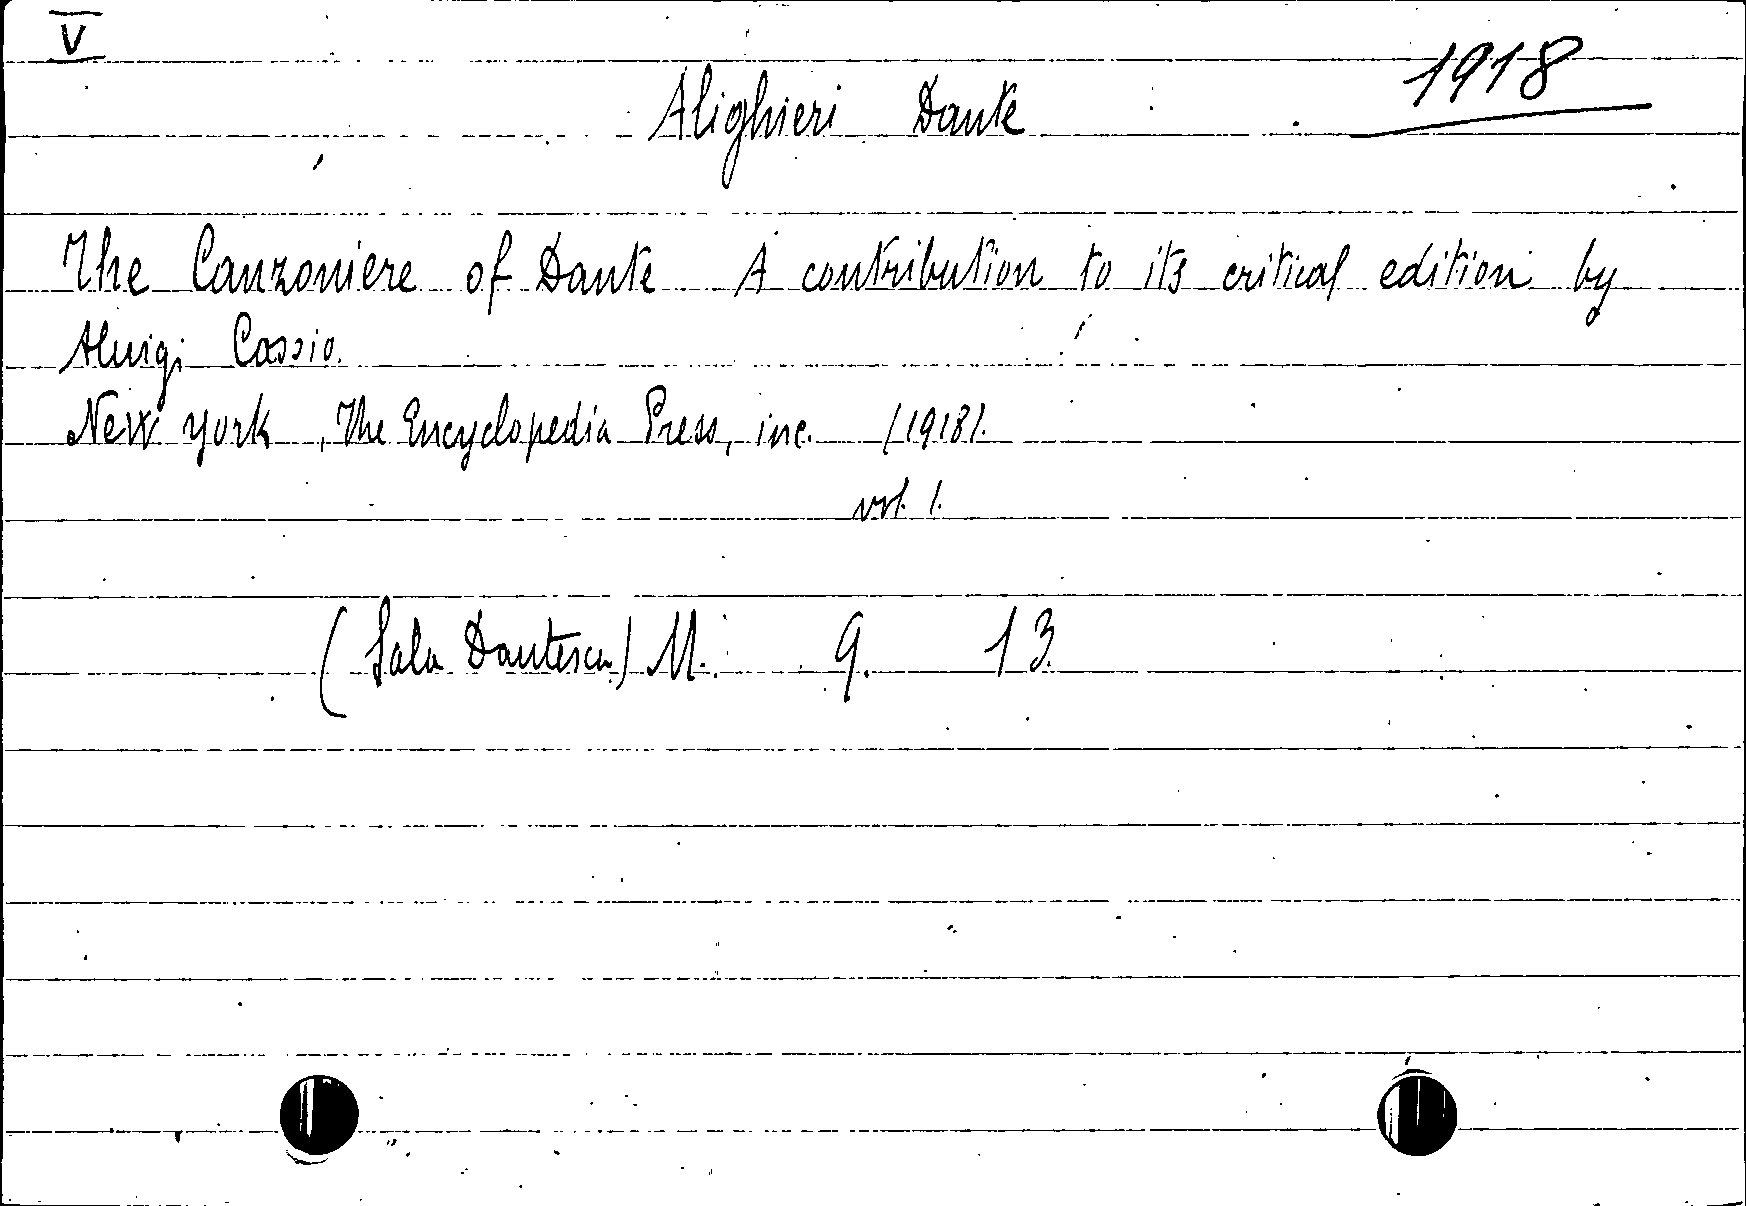 V
1918
Alighieri Dante
The Canzoniere of Dante A contribution to its critical edition by
Aluigi Cossio.
New York, The Encyclopedia Press, inc. (1918).
vol. 1.
(Sala Dantesca) M. 9. 13.